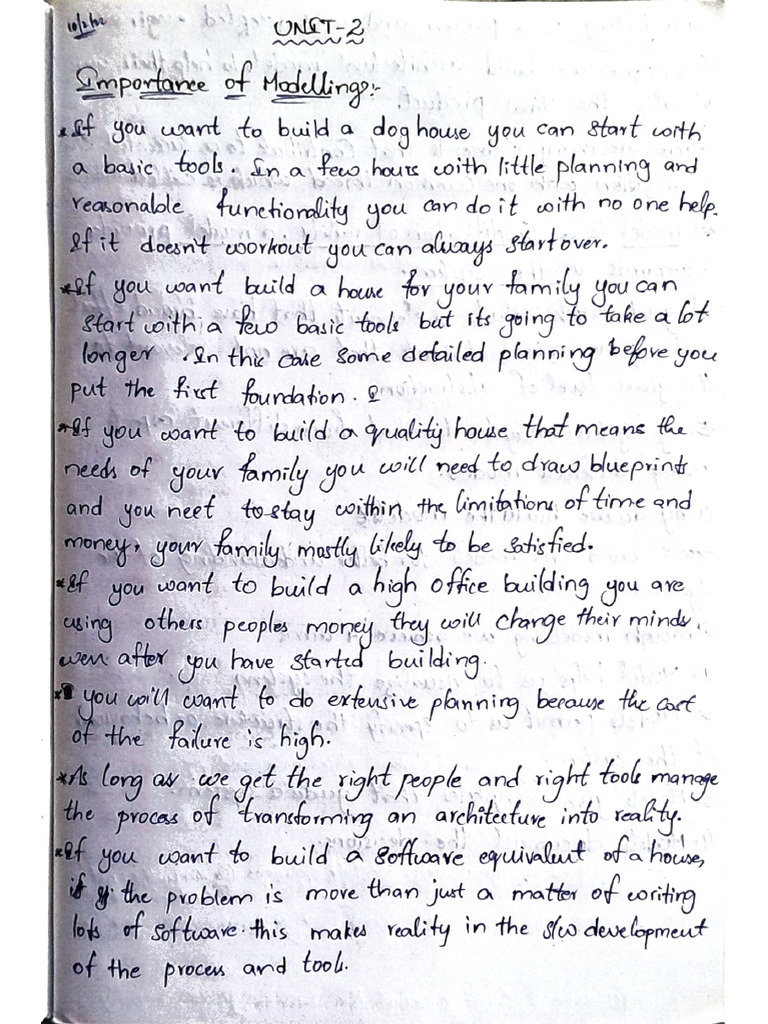 10/2/22
UNIT-2
Importance of Modelling:-
* If you want to build a dog house you can start with
a basic tools. In a few hours with little planning and
reasonable functionality you can do it with no one help.
If it doesn't workout you can always start over.
* If you want build a house for your family you can
start with a few basic tools but its going to take a lot
longer. In this case some detailed planning before you
put the first foundation.
* If you want to build a quality house that means the
needs of your family you will need to draw blueprints
and you neet to stay within the limitations of time and
money, your family mostly likely to be satisfied.
* If you want to build a high office building you are
using others peoples money they will change their minds,
even after you have started building.
* you will want to do extensive planning, because the cost
of the failure is high.
* As long as we get the right people and right tools manage
the process of transforming an architecture into reality.
* If you want to build a software equivalent of a house,
if the problem is more than just a matter of writing
lots of software. this makes reality in the s/w development
of the process and tools.